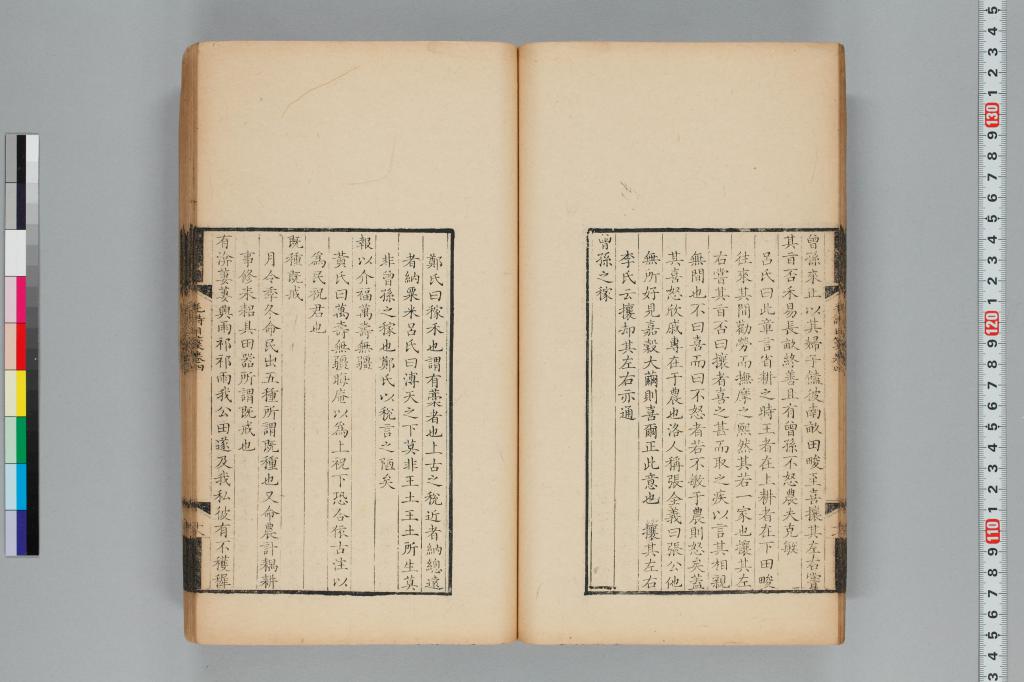 曾孫來止以其婦子饁彼南畝田畯至喜攘其左右嘗
其旨否禾易長畝終善且有曾孫不怒農夫克敏
呂氏曰此章言省耕之時王者在上耕者在下田畯
往來其間勸勞而撫摩之熙然其若一家也攘其左
右嘗其旨否曰攘者喜之甚而取之疾以言其相親
無間也不曰喜而曰不怒者若不敏于農則怒矣蓋
其喜怒欣戚專在于農也洛人稱張全義曰張公他
無所好見嘉穀大繭則喜爾正此意也 攘其左右
李氏云攘却其左右亦通
曾孫之稼
鄭氏曰稼禾也謂有藁者也上古之稅近者納總遠
者納粟米呂氏曰溥天之下莫非王土王土所生莫
非曾孫之稼也鄭氏以稅言之陋矣
報以介福萬壽無疆
黄氏曰萬壽無疆晦庵以為上祝下恐合依古注以
為民祝君也
既種既戒
月令季冬命民出五種所謂既種也又命農計耦耕
事修耒耜具田器所謂既戒也
有渰萋萋興雨祁祁雨我公田遂及我私彼有不穫穉